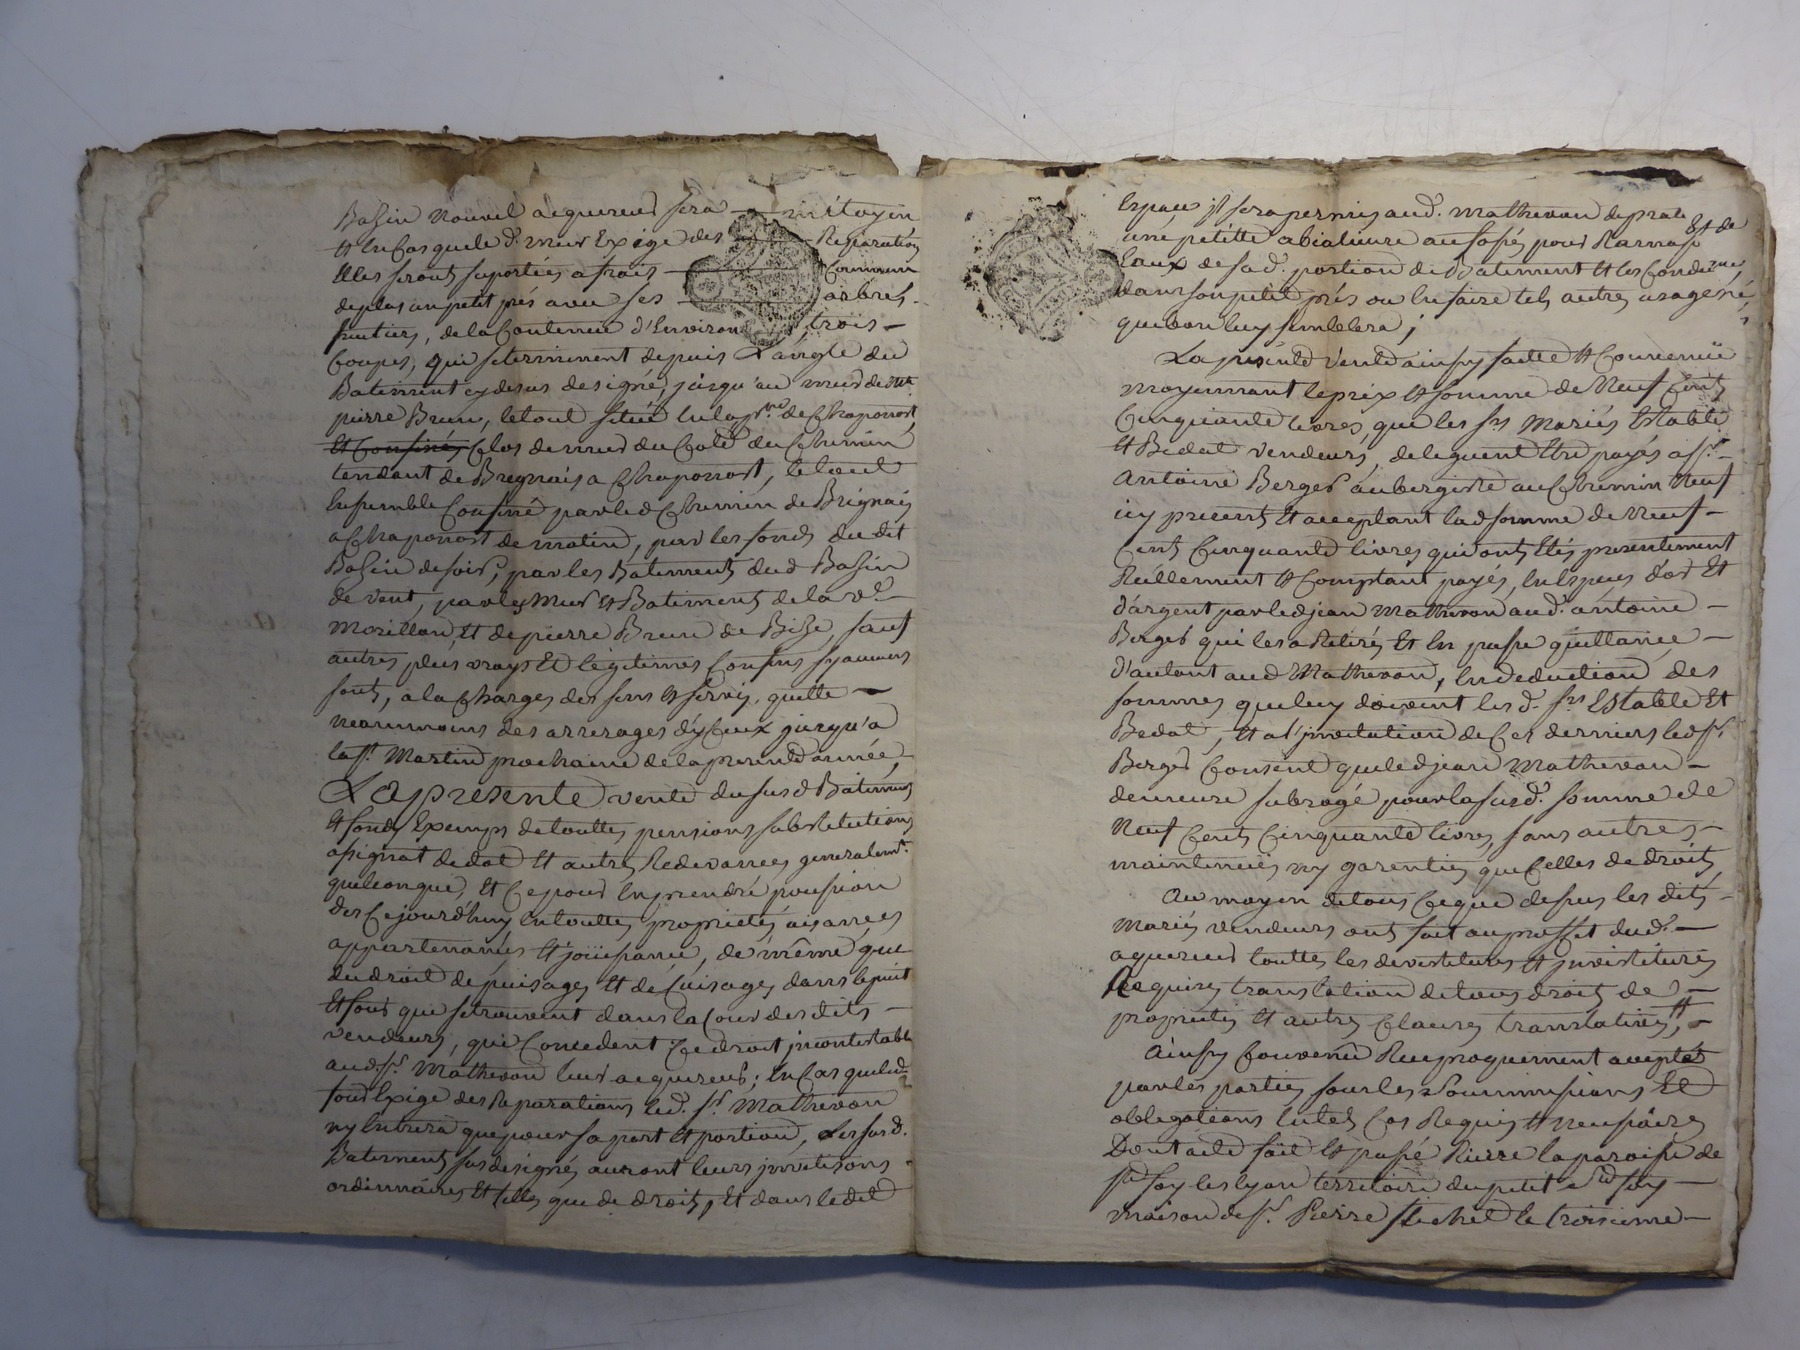 Bassin nouvel acquereur sera mitoyen
Et En Cas que le d. mur Exige des Reparations
Elles seront suportées a frais Commun
de plus un petit prés avec ses arbres
fruitiers, de la Contenue d'Environ trois
Coupes, qui se terminent depuis L'angle du
Batiment cy desus designé, jusqu'au mur de me
pierre Brun, le tout situé En la p.sse de Chaponost
Et Confinés Clos de murs du Coté du Chemin
tendant de Bregnais a Chaponost, le tout
Ensemble Confiné par le d Chemin de Brignais
a Chaponost de matin, par les fonds du dit
Bassin de soir, par les Batiments du d Bassin
de vent, par les Murs Et Batiments de la ve
Morillon, Et de pierre Brun de Bize, sauf
autres plus vrays Et légitimes Confins sy aucuns
sont, a la Charges des sens Et servis, quitte
neanmoins des arrerages d'yCeux jusqu'a
la st Martin prochaine de la presente année,
La presente vente du sus d Batiments
Et fonds Exemps de touttes pensions substitutions
assignat de dot Et autres Redevances generalemt
quelconque, Et Ce pour En prendre possession
des Ce jourd'huy En touttes proprietés, aisances
appartenances Et joüissance, de même que
du droit de puisages Et de Cuisages dans le puit
Et four qui se trouvent dans la Cour des dits
vendeurs, qui Concedent Ce droit incontestable
au d sr. Mathevon leur acquereur; En Cas que le d
four Exige des Reparations le d. sr Mathevon
ny Entrera que pour sa part Et portion, Les sus d.
Batiments sus designés auront leurs invetisons
ordinnaires Et telles que de droits, Et dans le dit
Espace il sera permis au d. Mathevon de pratiquer
une petitte abialieure au fossés pour Ramasser
Eaux de sa d. portion de Batiment Et les Conduire
dans son petit prés ou En faire tels autres usages
que bon luy semblera;
La presente vente ainsy faitte Et Convenüe
moyennant le prix Et somme de Neuf Cent
Cinquante livres, que les srs Mariés Estable
Et Bedat vendeurs, deleguent Etre payés a sr
Antoine Berger aubergiste au Chemin Neuf
icy present Et acceptant la d somme de Neuf
Cent Cinquante livres qui ont Etés presentement
Réellement Et Comptant payés, En Especes d'or Et
d'argent par le d jean Mathevon au d. antoine
Berger qui les a Retirés Et En passe quittance
d'autant au d Mathevon, En deduction des
sommes que luy doivent les d. srs Estable Et
Bedat, Et a l'invitation de Ces derniers le d sr
Berger Consent que le d jean Mathevon
demeure subrogé pour la sus d. somme de
Neuf Cent Cinquante livres, sans autres
maintenües ny garenties que Celles de droits
Au moyen de tous Ce que desus les dits
Mariés vendeurs ont fait au proffit du d.
aquereur touttes les devestitures Et investitures
Requises translation de tous droits de
proprietés Et autres Clauses translatives,
Ainsy Convenu Reciproquement acceptés
par les parties sous les Soummissions Et
obligations En tels Cas Requis Et necessaires
Dont acte fait Et passé Riere la paroisse de
ste foy les lyon territoire du petit ste foy
maison de sr. Pierre le troisieme